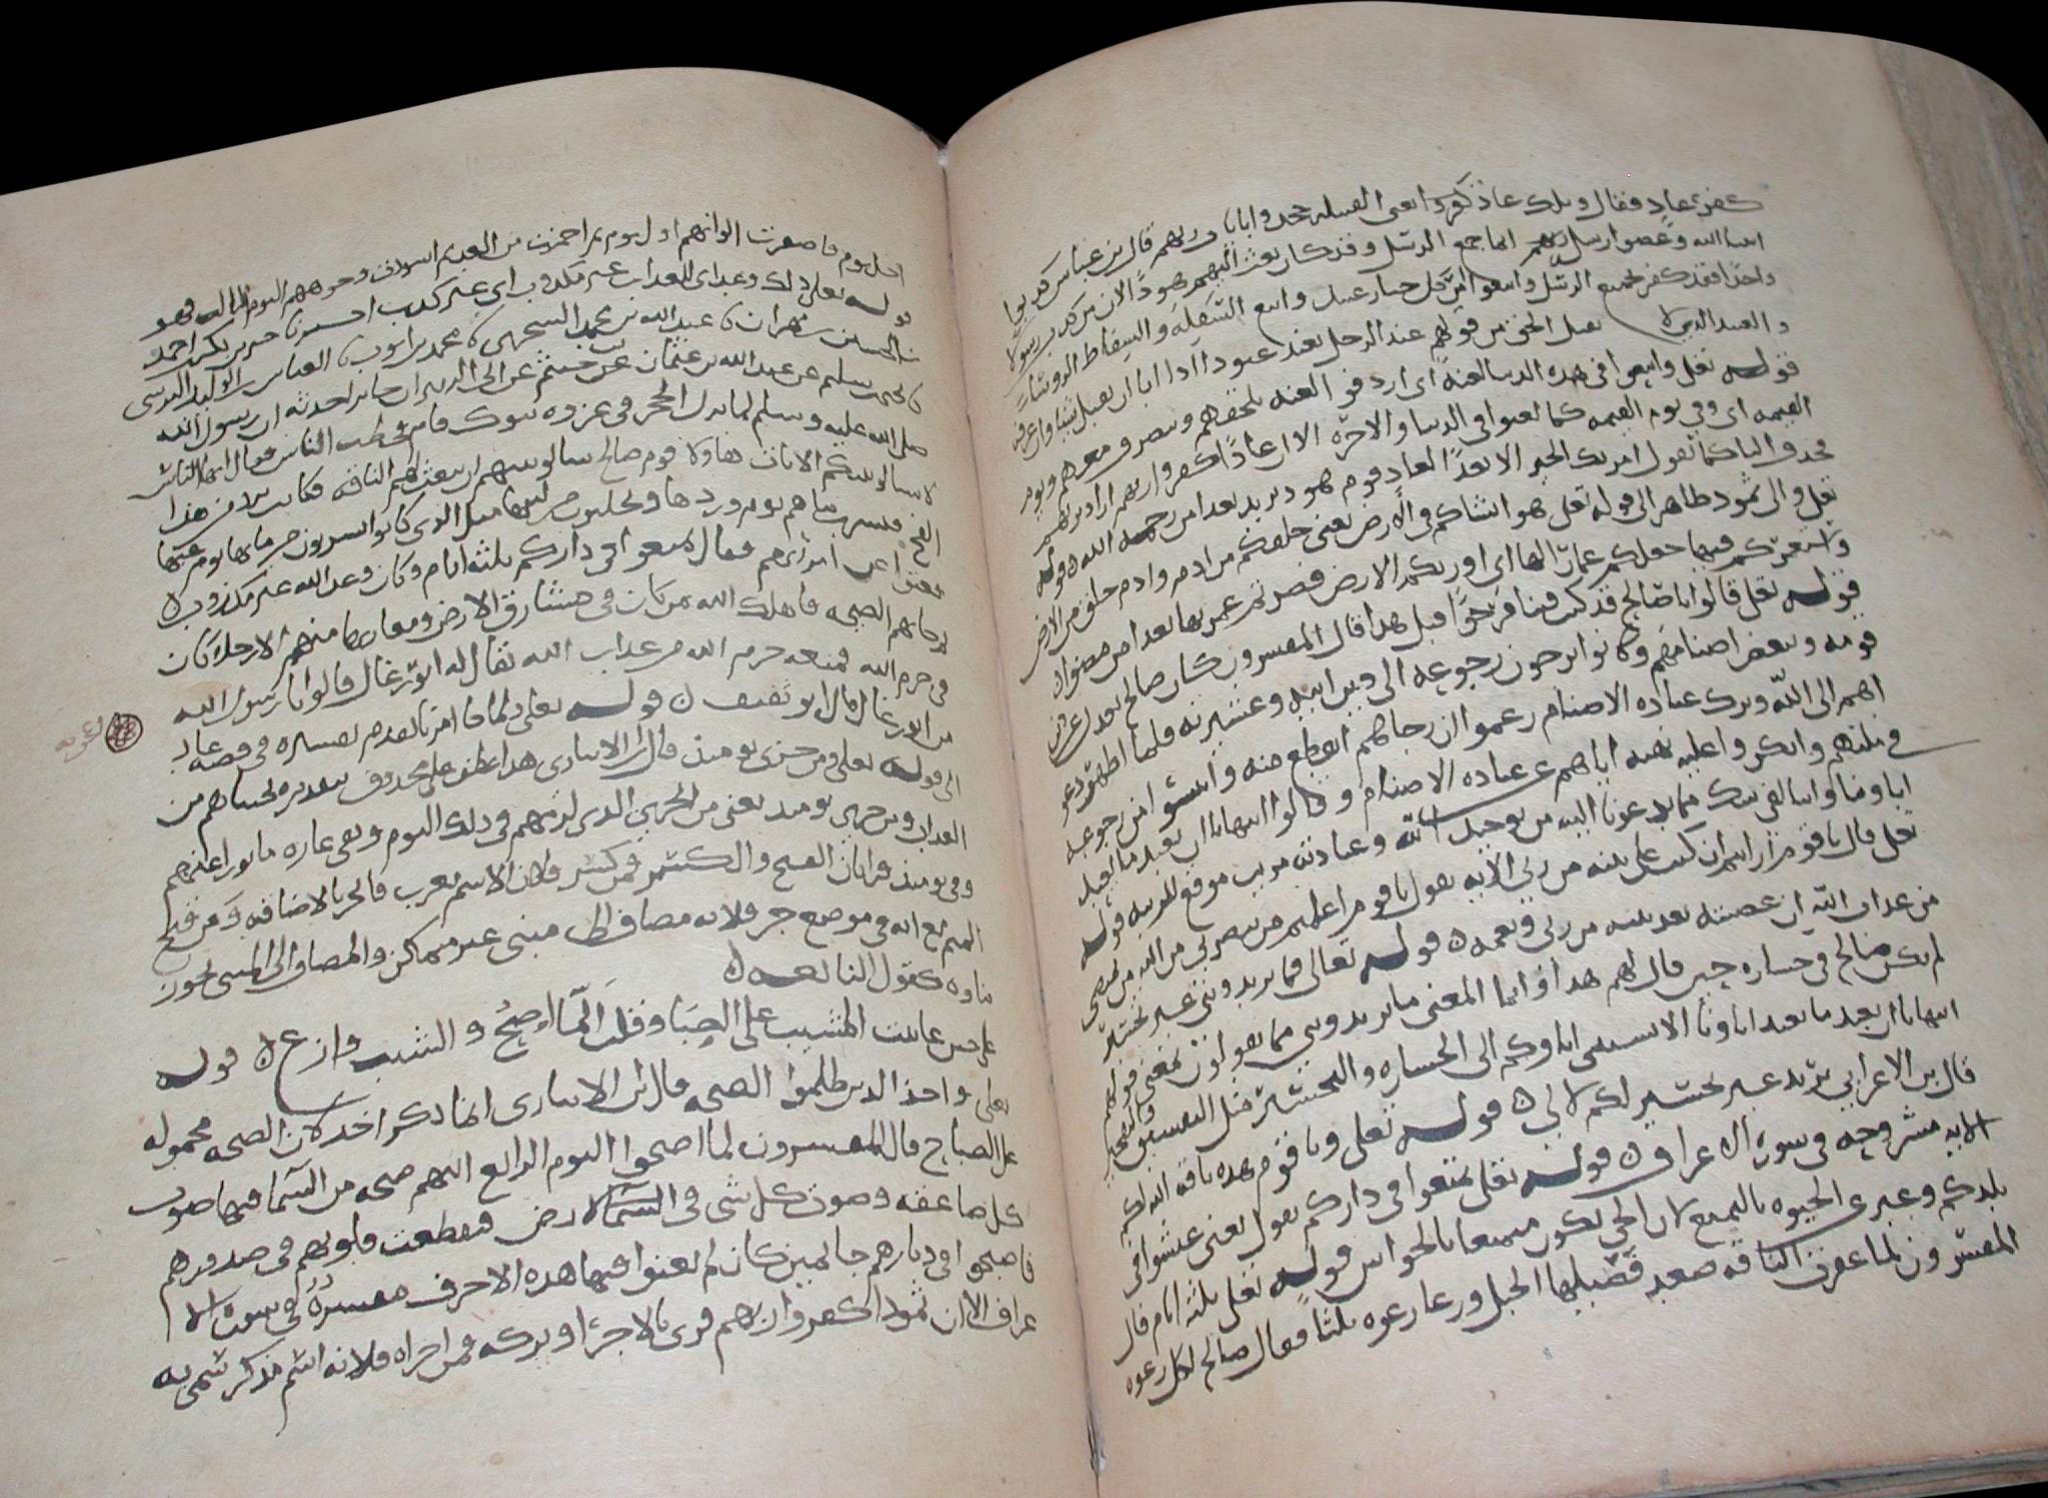 كفر عاد فقال وتلك عاد ذكروا يعنى القبيله جحدوا بايات ربهم قال بن عباس كذبوا
انبيا الله وعصوا رسل ربهم انما جمع الرسل وقد كان بعث اليهم هودا لان من كذب رسولا
واحدا فقد كفر بجميع الرسل واتبعوا امر كل جبار عنيد واتبع السفله والسقاط الروسا
و العنيد الذى لا يقبل الحق من قولهم عند الرجل يعند عنودا اذا ابا ان يقبل شيا وان عرفه
قوله تعلى واتبعوا فى هذه الدنيا لعنة اى اردفوا لعنه تلحقهم وتنصرف معهم ويوم
القيمه اى وفى يوم القيمه كما لعنوا فى الدنيا والاخره الا ان عادا كفروا ربهم اراد بربهم
فحذف البا كما تقول امرتك الخير الا بعدا لعاد قوم هود يريد بعدا من رحمة الله قوله
تعلى والى ثمود ظاهر الى قوله تعلى هو انشاكم من الارض يعنى خلقكم من ادم وادم خلق من الارض
واستعمركم فيها جعلكم عمارا لها اى اورثكم الارض فصرتم عمرتها بعد من مضوا
قوله تعلى قالوا يا صالح قد كنت فينا مرجوا قبل هذا قال المفسرون كان صالح يعدل عن دين
قومه ويبغض اصنامهم وكانوا يرجون رجوعه الى دين ابيه وعشيرته فلما اظهر دعو
اهم الى الله وترك عباده الاصنام زعموا ان رجاهم انقطع منه وايسوا من رجوعه
فى ملتهم وانكروا عليه نهيه اياهم عن عباده الاصنام وقالوا اتنهانا ان نعبد ما يعبد
اباونا واننا لفى شك مما تدعونا اليه من توحيد الله وعبادته مريب موقع للريبه قوله
تعلى قال يا قوم ارايتم ان كنت على بينه من ربى الايه يقول يا قوم من ينصرنى من الله
من عذاب الله ان عصيته بعد بينه من ربى ونعمه قوله تعالى فما تزيدوننى غير تخسير
لم يكن صالح فى خساره حين قال لهم هذا وانما المعنى ما تزيدونى مما تقولون بمعنى قولهم
اتنهانا ان نعبد ما يعبد اباونا الا نسبتى اياكم الى الخساره والتخسير مثل التفسيق والتفجير
قال بن الاعرابى يريد غير تخسير لكم لا لى قوله تعلى ويا قوم هذه ناقه الله لكم
الايه مشروحه فى سوره الاعراف قوله تعلى تمتعوا فى داركم يقول يعنى عيشوا فى
بلدكم وعبر عن الحيوه بالتمتع لان الحى يكون متمتعا بالحواس قوله تعلى ثلثه ايام قال
المفسرون لما عقرت الناقه صعد فصيلها الجبل ورغا رغوه ثلثا فقال صالح لكل رغوه
اجل يوم فاصفرت الوانهم اول يوم ثم احمرت من الغد ثم اسودت وجوههم اليوم الثالث فهو
قوله تعلى ذلك وعد اى للعذاب غير مكذوب اى غير كذب
بن الحسين بن مهران نا عبد الله بن محمد نا محمد بن ايوب نا العباس بن الوليد النرسى
نا يحيى بن سليم عن عبد الله بن عثمان بن خثيم عن ابى الزبير ان جابرا حدثه ان رسول الله
صلى الله عليه وسلم لما نزل الحجر فى غزوه تبوك قام فخطب الناس فقال ايها الناس
لا تسالوا نبيكم الايات هاولا قوم صالح سالوا نبيهم ان يبعث لهم الناقه فكانت ترد من هذا
الفج فتشرب ماهم يوم ورودها ويحلبون من لبنها مثل الذى كانوا يشربون من مايها يوم غبها
فعتوا عن امر ربهم فقال تمتعوا فى داركم ثلثه ايام وكان وعد الله غير مكذوب
ثم جاتهم الصيحه فاهلك الله من كان فى مشارق الارض ومغاربها منهم الا رجلا كان
فى حرم الله فمنعه حرم الله من عذاب الله يقال له ابو رغال قالوا يا رسول الله
من ابو رغال قال ابو ثقيف قوله تعلى ولما جا امرنا تقدم تفسيره فى قصه عاد
لعويه
الى قوله تعلى ومن خزى يوميذ قال بن الانبارى هذا عطف على محذوف تقديره نجيناهم من
العذاب ومن خزى يوميذ يعنى من الخزى الذى لزمهم فى ذلك اليوم وبقى عاره ماثورا عنهم
وفى يوميذ قراتان الفتح والكسر فمن كسر فلان الاسم معرب فانجر بالاضافه ومن فتح
الميم مع انه فى موضع جر فلانه مضاف الى مبنى غير متمكن والمضاف الى المبنى يجوز
بناوه كقول النابغه
على حين عاتبت المشيب على الصبا وقلت الما اصح والشيب وازع قوله
تعلى واخذ الذين ظلموا الصيحه قال بن الانبارى انما ذكر اخذ لان الصيحه محموله
على الصياح قال المفسرون لما اصبحوا اليوم الرابع اتتهم صيحه من السما فيها صوت
كل صاعقه وصوت كل شى فى السما والارض فتقطعت قلوبهم فى صدورهم
فاصبحوا فى ديارهم جاثمين كان لم يغنوا فيها هذه الاحرف مفسره فى سوره الا
عراف الا ان ثمودا كفروا ربهم قرى بالاجرا وتركه فمن اجراه فلانه اسم مذكر سمى به